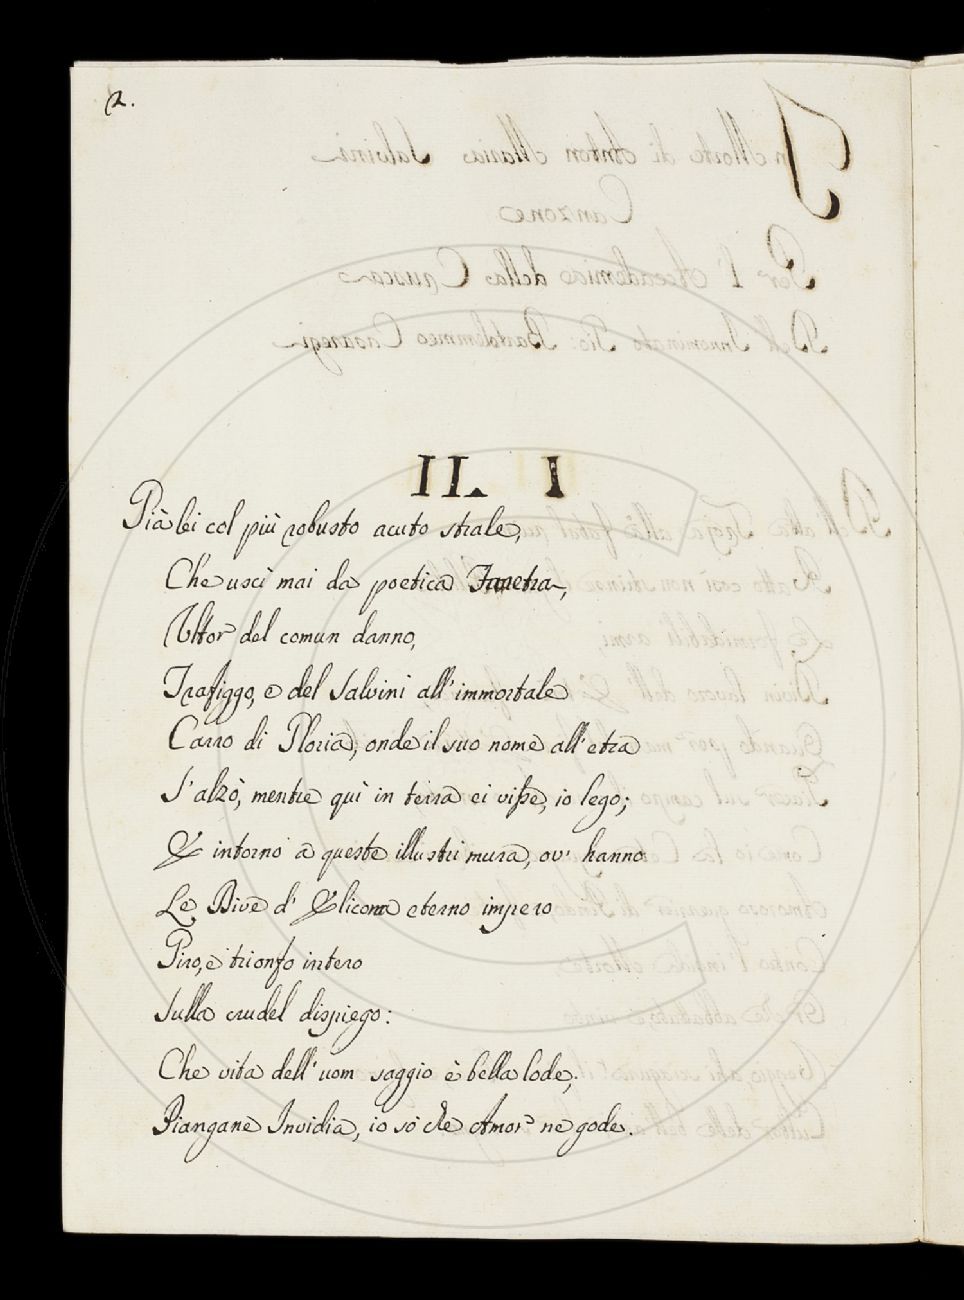 2.
II. I
Già lei col più robusto acuto strale,
Che uscì mai da poetica Faretra,
Ultor del comun danno,
Trafiggo, e del Salvini all'immortale
Carro di Gloria, onde il suo nome all'etra
S'alzò, mentre quì in terra ei viſse, io lego;
E intorno a queste illustri mura, ov' hanno
Le Dive d' Elicona eterno impero
Giro, e trionfo intero
Sulla crudel dispiego:
Che vita dell'uom saggio è bella lode;
Piangane Invidia, io sò che Amor ne gode.